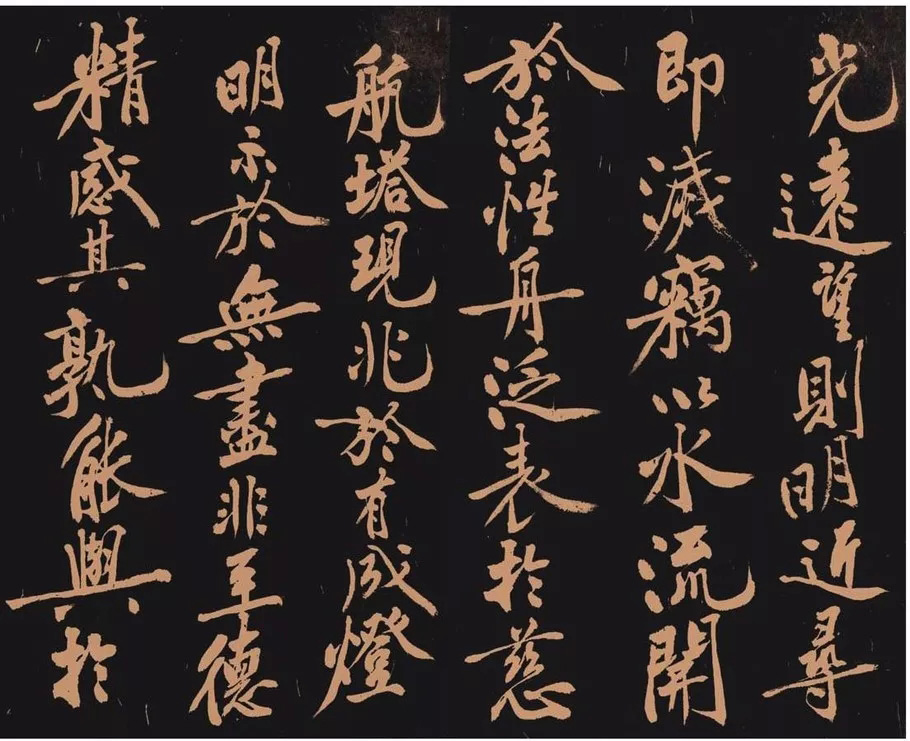 光遠望則明近尋
即滅竊以水流開
於法性舟泛表於慈
航塔現兆於有成燈
明示於無盡非至德
精感其孰能與於